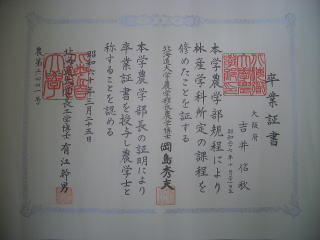 卒業証書
大阪府
吉井信秋
本学農学部規程により
林産学科所定の課程を
修めたことを証する
北海道大学農学部長農学博士 岡島秀夫
本学農学部長の証明により
卒業証書を授与し農学士と
称することを認める
昭和六十年三月二十五日
北海道大学長工学博士 有江幹男